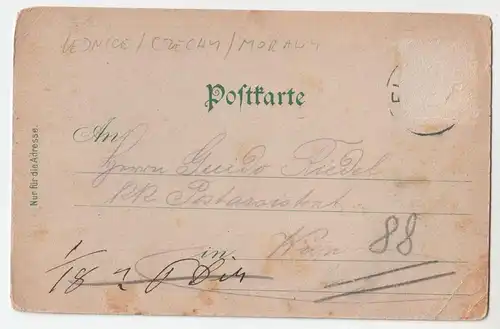 LEDNICE / CZECHY / MORAWY
Postkarte
Nur für die Adresse.
An
Herrn Guido Riedel
k.k. Postassistent
in Wien
88
1/18